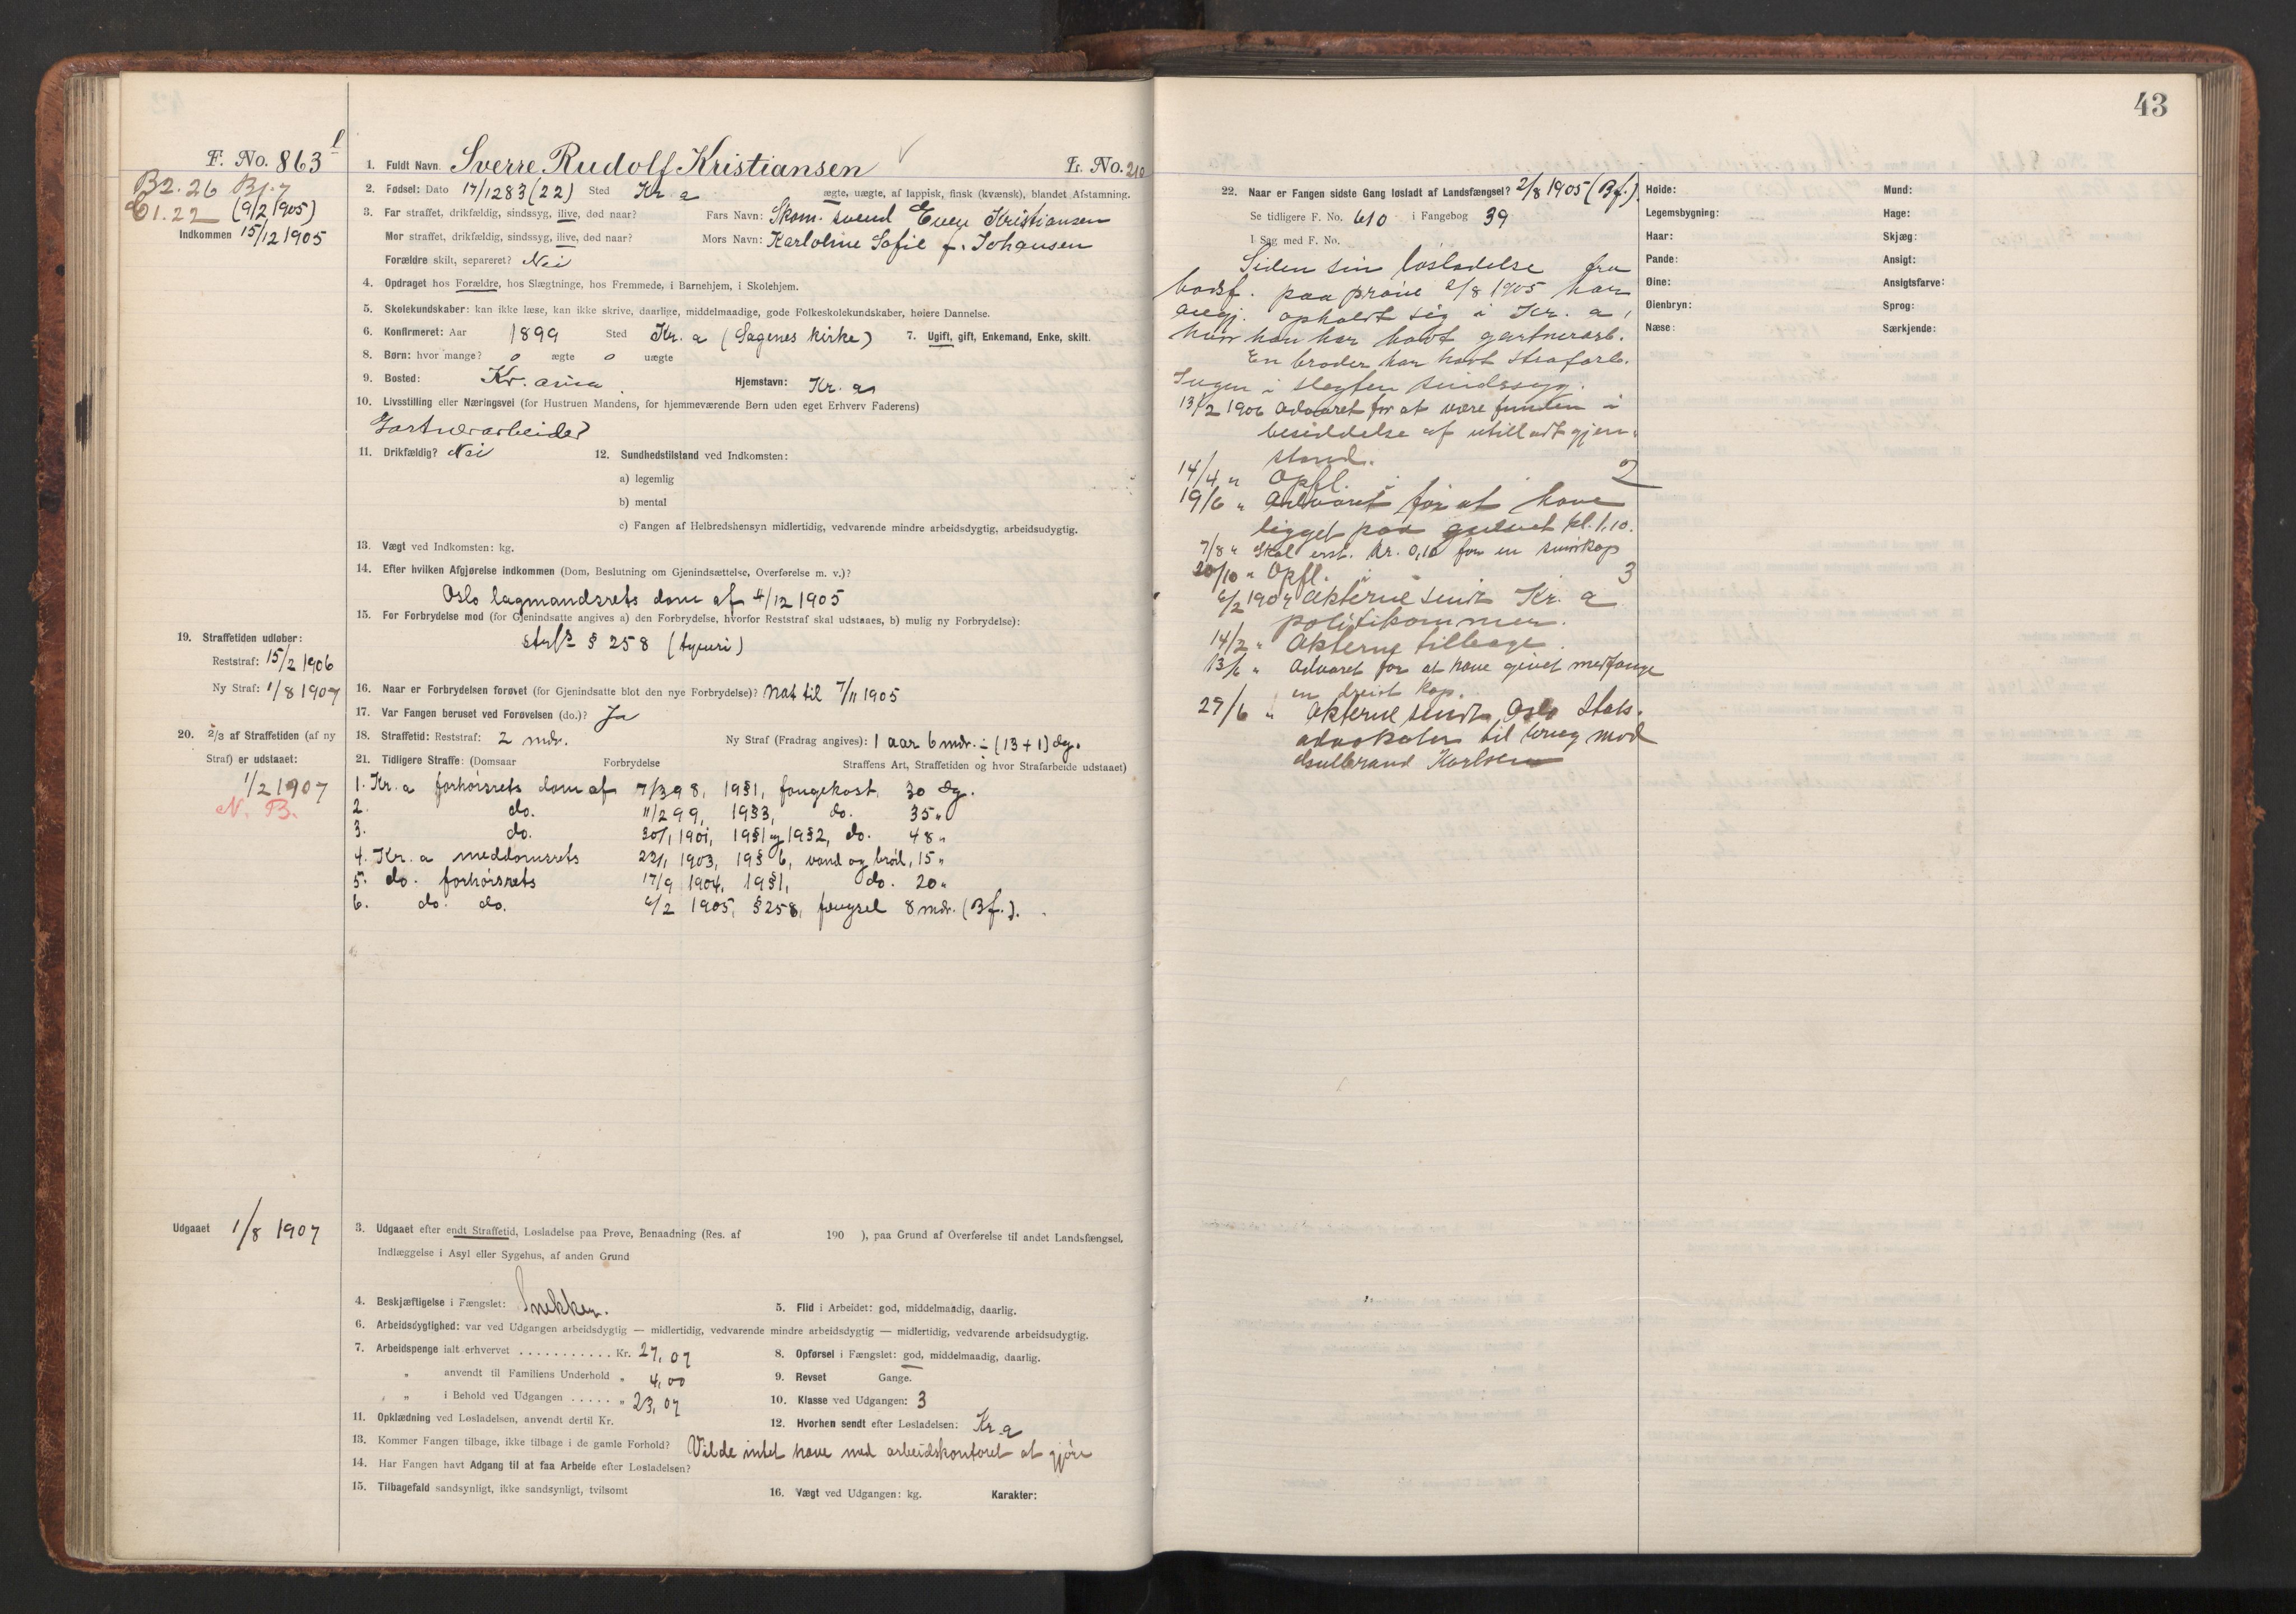 43
F. No. 863
B2. 26 B1. 7
61. 22 (9/2 1905)
Indkommen 15/12 1905
1. Fuldt Navn Sverre Rudolf Kristiansen L. No. 210
2. Fødsel: Dato 17/12 83 (22) Sted Kr. a ægte, uægte, af lappisk, finsk (kvænsk), blandet Afstamning.
3. Far straffet, drikfældig, sindssyg, ilive, død naar? Fars Navn: Skom. svend Kristiansen
Mor straffet, drikfældig, sindssyg, ilive, død naar? Mors Navn: Karloline Sofie f. Johansen
Forældre skilt, separeret? Nei
4. Opdraget hos Forældre, hos Slægtninge, hos Fremmede, i Barnehjem, i Skolehjem.
5. Skolekundskaber: kan ikke læse, kan ikke skrive, daarlige, middelmaadige, gode Folkeskolekundskaber, høiere Dannelse.
6. Konfirmeret: Aar 1899 Sted Kr. a (Sagenes kirke) 7. Ugift, gift, Enkemand, Enke, skilt.
8. Børn: hvor mange? 0 ægte 0 uægte
9. Bosted: Kr. ania. Hjemstavn: Kr. a
10. Livsstilling eller Næringsvei (for Hustruen Mandens, for hjemmeværende Børn uden eget Erhverv Faderens)
Gartnerarbeider
11. Drikfældig? Nei 12. Sundhedstilstand ved Indkomsten:
a) legemlig
b) mental
c) Fangen af Helbredshensyn midlertidig, vedvarende mindre arbeidsdygtig, arbeidsudygtig.
13. Vægt ved Indkomsten: kg.
14. Efter hvilken Afgjørelse indkommen (Dom, Beslutning om Gjenindsættelse, Overførelse m. v.)?
Oslo lagmandsrets dom af 4/12 1905
15. For Forbrydelse mod (for Gjenindsatte angives a) den Forbrydelse, hvorfor Reststraf skal udstaaes, b) mulig ny Forbrydelse):
§ 258 (tyveri)
19. Straffetiden udløber:
Reststraf: 15/2 1906
Ny Straf: 1/8 1907
16. Naar er Forbrydelsen forøvet (for Gjenindsatte blot den nye Forbrydelse)? Nat til 7/11 1905
17. Var Fangen beruset ved Forøvelsen (do.)? Ja
18. Straffetid: Reststraf: 2 mdr. Ny Straf (Fradrag angives): 1 aar 6 mdr. ÷ (13 + 1) dg.
20. 2/3 af Straffetiden (af ny
Straf) er udstaaet:
1/2 1907
N. B.
21. Tidligere Straffe: (Domsaar Forbrydelse Straffens Art, Straffetiden og hvor Strafarbeide udstaaet)
1. Kr. a forhørsrets dom af 7/3 98, 19§1, fangekost, 30 dg.
2. do. 11/2 99, 19§3, do. 35 "
3. do. 30/1 1901, 19§1 og 19§2, do. 48 "
4. Kr. a meddomsrets 22/1 1903, 19§6, vand og brød, 15 "
5. do. forhørsrets 17/9 1904, 19§1, do. 20 "
6. do. do. 6/2 1905, §258, fængsel 8 mdr. (Bf.).
Udgaaet 1/8 1907
3. Udgaaet efter endt Straffetid, Løsladelse paa Prøve, Benaadning (Res. af 190 ), paa Grund af Overførelse til andet Landsfængsel,
Indlæggelse i Asyl eller Sygehus, af anden Grund
4. Beskjæftigelse i Fængslet: Snekker. 5. Flid i Arbeidet: god, middelmaadig, daarlig.
6. Arbeidsdygtighed: var ved Udgangen arbeidsdygtig — midlertidig, vedvarende mindre arbeidsdygtig — midlertidig, vedvarende arbeidsudygtig.
7. Arbeidspenge ialt erhvervet . . . . . . . . . . . Kr. 27,07 8. Opførsel i Fængslet: god, middelmaadig, daarlig.
" anvendt til Familiens Underhold " 4,00 9. Revset Gange.
" " i Behold ved Udgangen . . . . . " 23,07 10. Klasse ved Udgangen: 3
11. Opklædning ved Løsladelsen, anvendt dertil Kr. 12. Hvorhen sendt efter Løsladelsen: Kr. a
13. Kommer Fangen tilbage, ikke tilbage i de gamle Forhold? Vilde intet have med arbeidskontoret at gjøre
14. Har Fangen havt Adgang til at faa Arbeide efter Løsladelsen?
15. Tilbagefald sandsynligt, ikke sandsynligt, tvilsomt 16. Vægt ved Udgangen: kg. Karakter:
22. Naar er Fangen sidste Gang løsladt af Landsfængsel? 2/8 1905 (Bf.)
Se tidligere F. No. 610 i Fangebog 39
I Sag med F. No.
Siden sin løsladelse fra
bodsf. paa prøve 2/8 1905 har
opholdt sig i Kr. a,
hvor han har havt gartnerarb.
En broder har havt strafarb.
Ingen i slegten sindssyg.
13/2 1906 Advaret for at være funden i
besiddelse af utilladt gjen-
stand.
14/4 " Opfl. i 2
19/6 " Advaret for at have
ligget paa gulvet kl. 1,10.
7/8 " Skal erst. kr. 0,10 for en
20/10 " Opfl. i 3
6/2 1907 Akterne sendt Kr. a
politikammer.
14/2 " Akterne tilbage.
13/6 " Advaret for at have givet medfange
en dreiet kop.
27/6 " Akterne sendt Oslo stats-
advokater til brug mod
Karlsen
Høide: Mund:
Legemsbygning: Hage:
Haar: Skjæg:
Pande: Ansigt:
Øine: Ansigtsfarve:
Øienbryn: Sprog:
Næse: Særkjende: